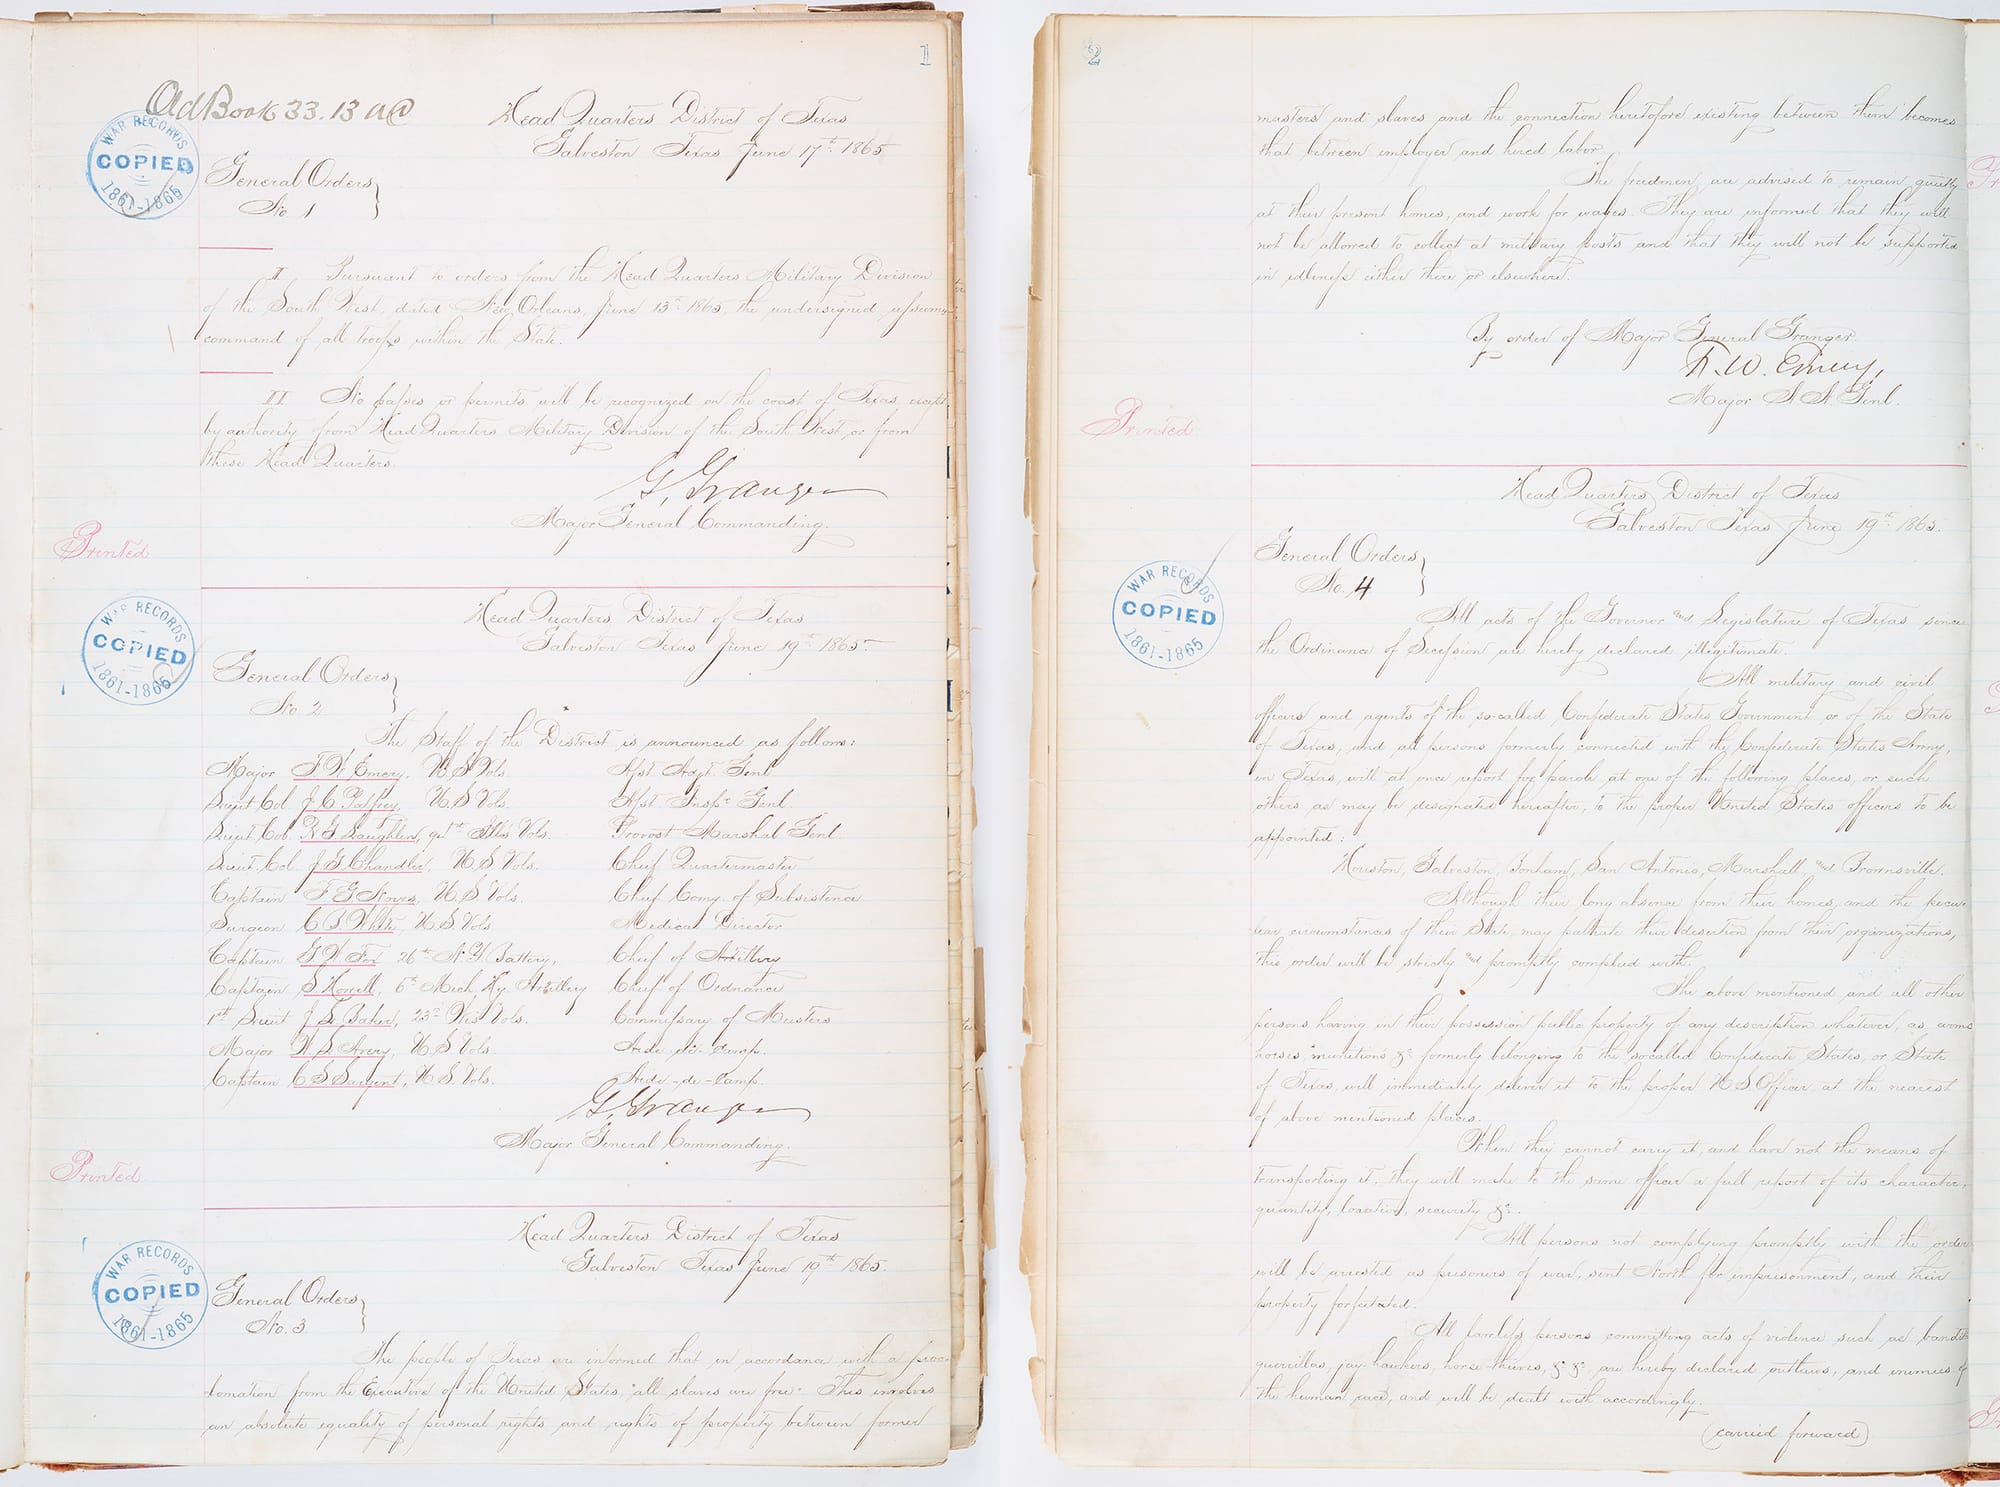 1
Old Book 33. 13 A@
WAR RECORDS
COPIED
1861-1865
Head Quarters District of Texas
Galveston Texas June 17th 1865
General Orders
No 1
I Pursuant to orders from the Head Quarters Military Division
of the South West, dated New Orleans, June 13th 1865, the undersigned assumes
command of all troops within the State.
II No passes or permits will be recognized on the coast of Texas, except
by authority from Head Quarters Military Division of the South West, or from
these Head Quarters.
G. Granger
Major General Commanding.
Printed
WAR RECORDS
COPIED
1861-1865
Head Quarters District of Texas
Galveston Texas June 19th 1865
General Orders
No 2
The Staff of the District is announced as follows:
Major F W Emery, U S Vols. Asst Adjt. Genl
Lieut Col J. C Palfrey, U. S Vols. Asst. Inspr Genl.
Lieut Col. R G Laughlin, 94th Ills Vols. Provost Marshal Genl.
Lieut. Col. J. G. Chandler, U. S Vols. Chief Quartermaster
Captain F G Noyes, U S Vols. Chief Comy. of Subsistence
Surgeon C B White, U. S Vols Medical Director
Captain G W Fox 26th N. Y Battery, Chief of Artillery
Captain S Howell, 6th Mich, Hy. Artillery Chief of Ordnance
1st Lieut J. L. Baker, 23rd Wis Vols. Commissary of Musters
Major W. L. Avery, U S Vols. Aide-de-Camp.
Captain C S Sargent, U S. Vols. Aide-de-Camp.
G. Granger
Major General Commanding.
Printed
WAR RECORDS
COPIED
1861-1865
Head Quarters District of Texas
Galveston Texas June 19th 1865.
General Orders
No. 3
The people of Texas are informed that in accordance with a proc-
lamation from the Executive of the United States "all slaves are free." This involves
an absolute equality of personal rights and rights of property between former
2
masters and slaves and the connection heretofore existing between them becomes
that between employer and hired labor.
The freedmen are advised to remain quietly
at their present homes, and work for wages. They are informed that they will
not be allowed to collect at military posts and that they will not be supported
in idleness either there or elsewhere.
By order of Major General Granger
F. W. Emery,
Major A A Genl.
Printed
Head Quarters District of Texas
Galveston Texas June 19th 1865.
General Orders
No. 4
WAR RECORDS
COPIED
1861-1865
All acts of the Governor and Legislature of Texas since
the Ordinance of Secession are hereby declared illegitimate.
All military and civil
officers and agents of the so-called Confederate States Government or of the State
of Texas, and all persons formerly connected with the Confederate States Army,
in Texas, will at once report for parole at one of the following places, or such
others as may be designated hereafter, to the proper United States officers to be
appointed:
Houston, Galveston, Bonham, San Antonio, Marshall, and Brownsville.
Although their long absence from their homes, and the pecu-
liar circumstances of their State, may palliate their desertion from their organizations,
this order will be strictly and promptly complied with.
The above mentioned and all other
persons having in their possession public property of any description whatever, as arms
horses, munitions &c formerly belonging to the so-called Confederate States, or State
of Texas, will immediately deliver it to the proper U S Officer at the nearest
of above mentioned places.
When they cannot carry it, and have not the means of
transporting it, they will make to the same officer a full report of its character,
quantity, location, security &c.
All persons not complying promptly with the order
will be arrested as prisoners of war, sent North for imprisonment, and their
property forfeited.
All lawless persons committing acts of violence such as banditti
guerrillas, jay-hawkers, horse-thieves, &c &c, are hereby declared outlaws, and enemies of
the human race, and will be dealt with accordingly.
(carried forward)